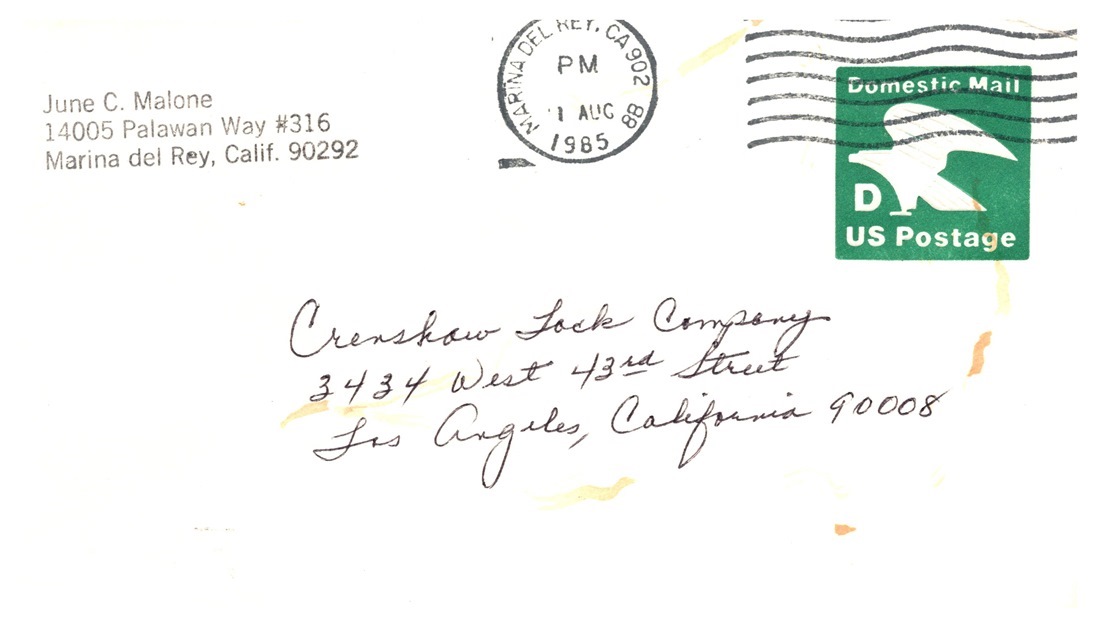 June C. Malone
14005 Palawan Way #316
Marina del Rey, Calif. 90292
MARINA DEL REY, CA 902
PM
1 AUG
1985
8B
Domestic Mail
D
US Postage
Crenshaw Lock Company
3434 West 43rd Street
Los Angeles, California 90008